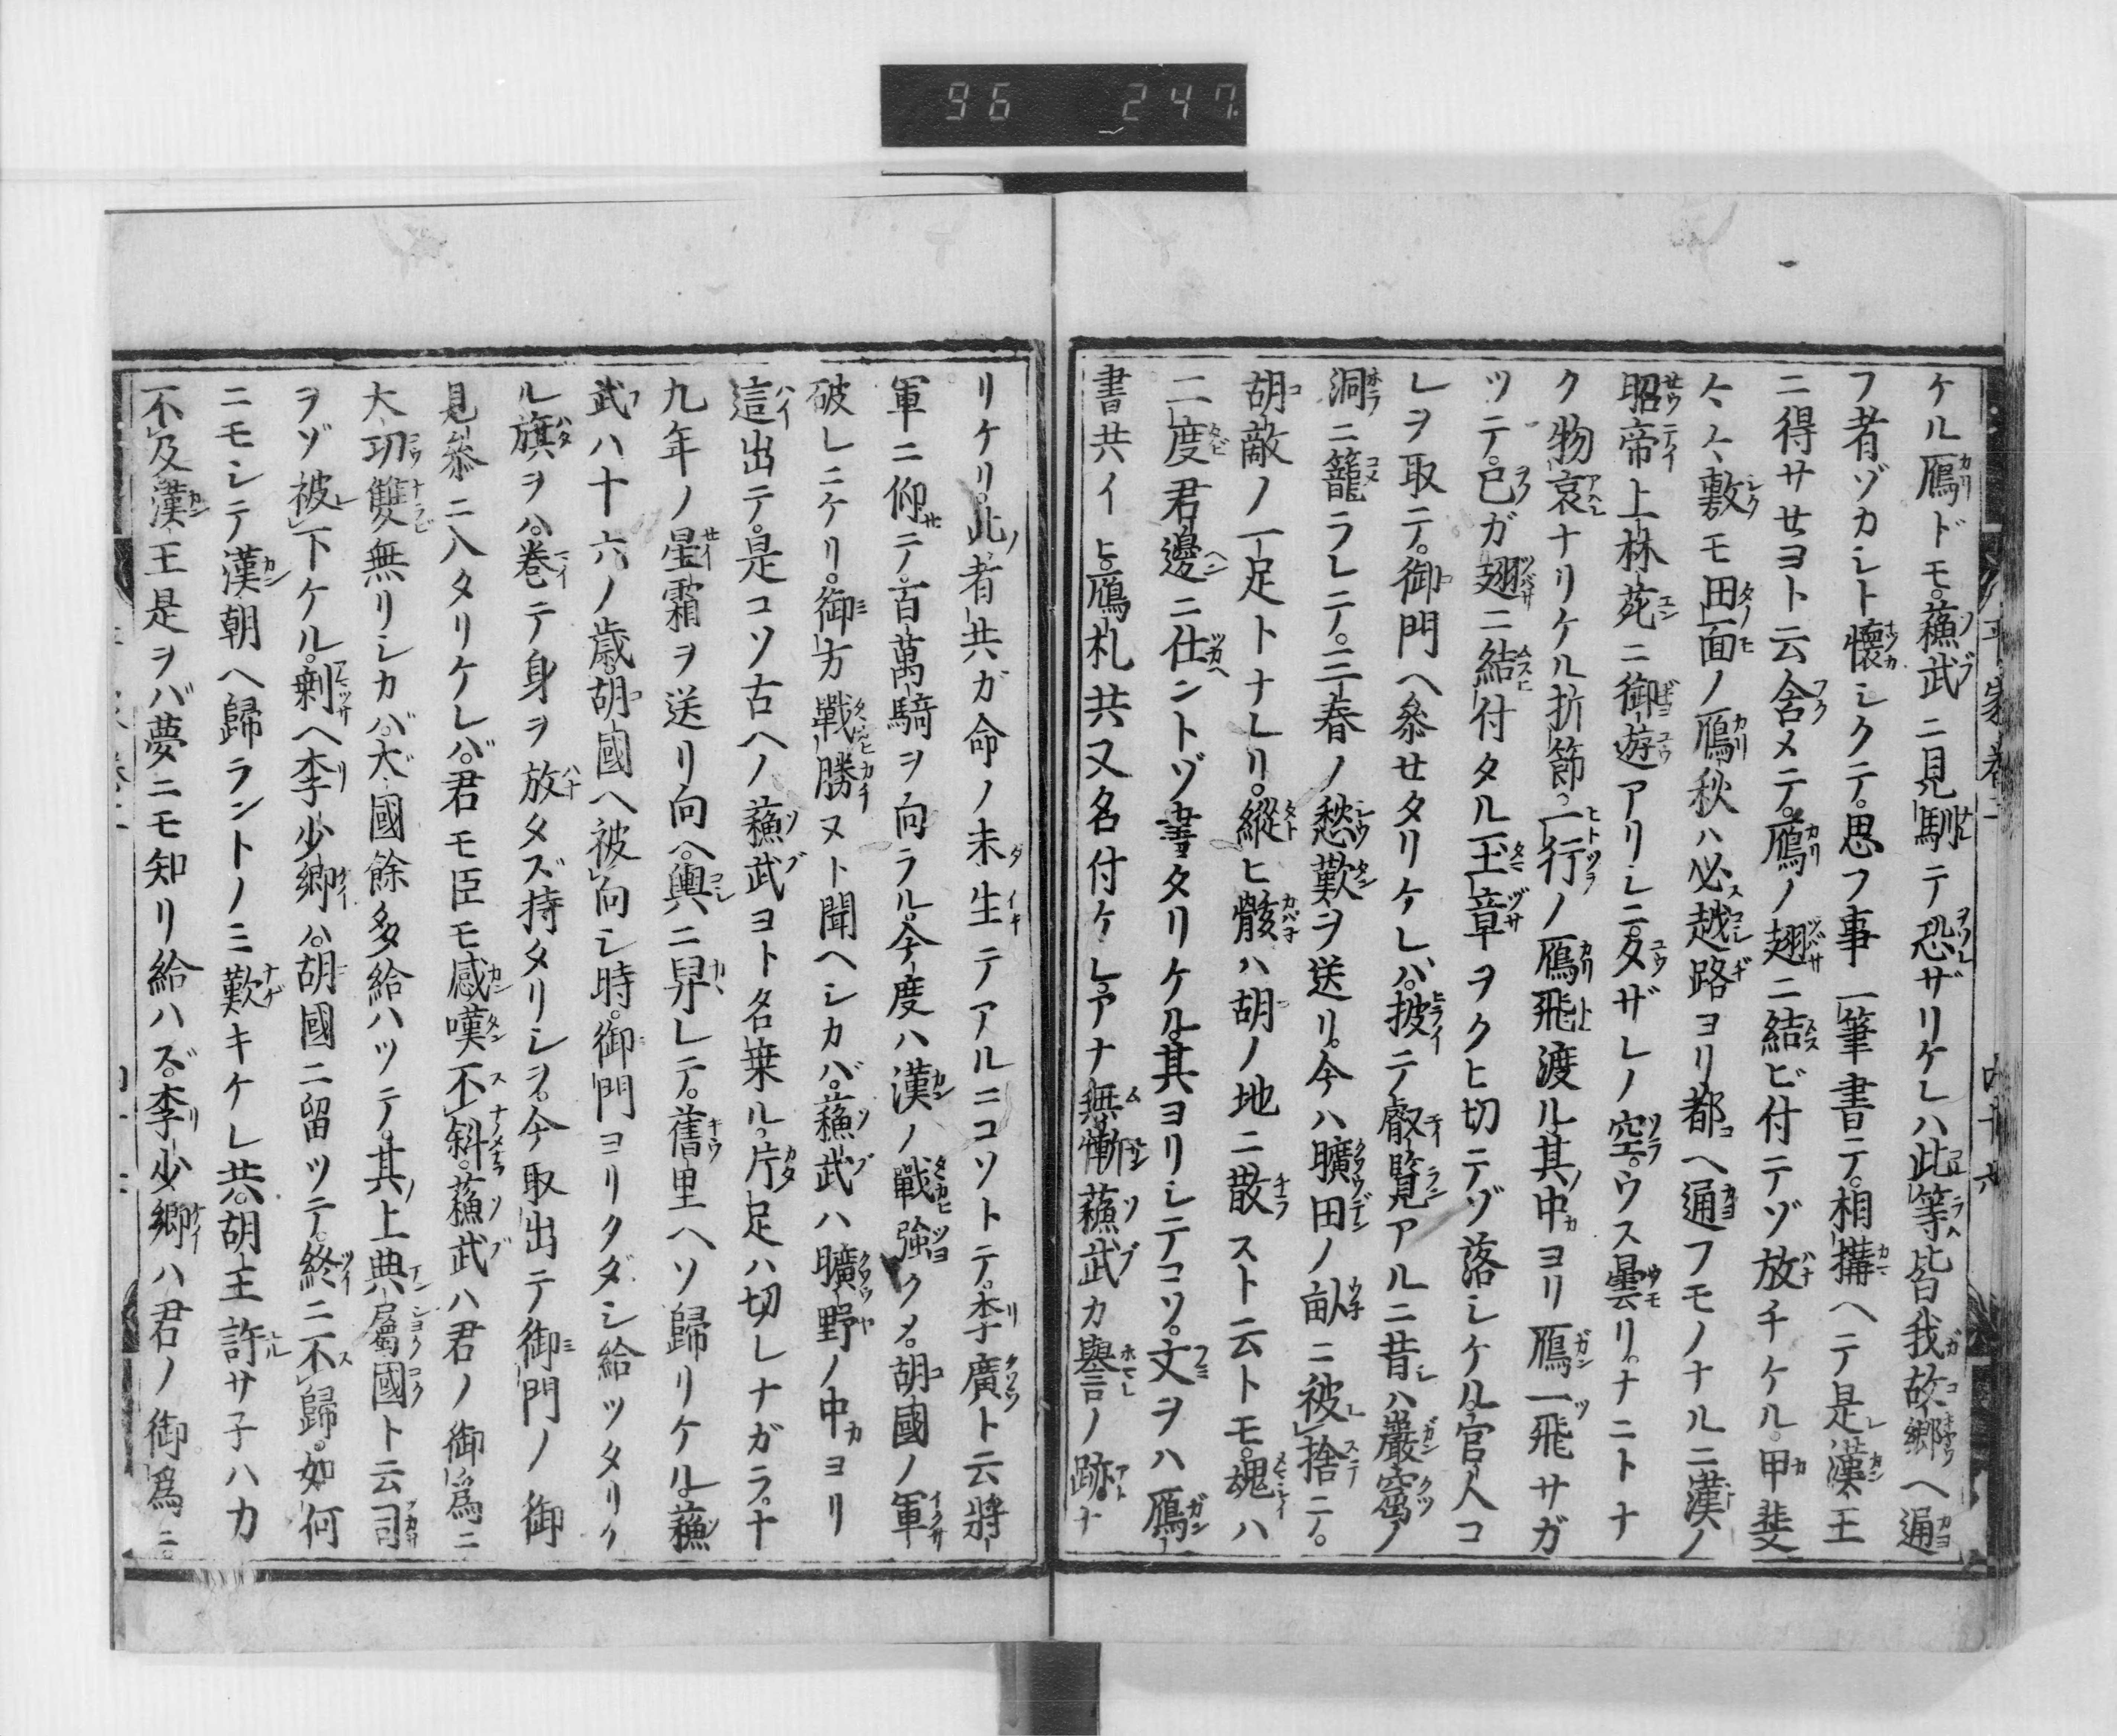 96 247
ケル鴈ドモ。蘓武ニ見馴テ恐ザリケレハ此等皆我故郷ヘ通
フ者ゾカシト懐シクテ。思フ事一筆書テ。相搆ヘテ是漢王
ニ得サセヨト云含メテ。鴈ノ翅ニ結ビ付テゾ放チケル。甲斐
々々敷モ田面ノ鴈秋ハ必越路ヨリ都ヘ通フモノナルニ漢ノ
昭帝上林苑ニ御遊アリシニ。夕ザレノ空。ウス曇リ。ナニトナ
ク物哀ナリケル折節。一行ノ鴈飛渡ル。其中ヨリ鴈一飛サガ
ツテ。已ガ翅ニ結付タル玉章ヲクヒ切テゾ落シケル。官人コ
レヲ取テ。御門ヘ叅セタリケレバ。披テ叡覧アルニ昔ハ巖窟ノ
洞ニ籠ラレテ。三春ノ愁歎ヲ送リ。今ハ曠田ノ畝ニ被捨テ。
胡敵ノ一足トナレリ。縱ヒ骸ハ胡ノ地ニ散スト云トモ。魂ハ
二度君邊ニ仕ントゾ書タリケル。其ヨリシテコソ。文ヲハ鴈
書共イヒ。鴈札共又名付ケレ。アナ無慚蘓武カ譽ノ跡ナ
リケリ。此者共ガ命ノ未生テアルニコソトテ。李廣ト云將
軍ニ仰テ。百萬騎ヲ向ラル。今度ハ漢ノ戰強クメ。胡國ノ軍
破レニケリ。御方戰勝ヌト聞ヘシカバ。蘓武ハ曠野ノ中ヨリ
這出テ。是コソ古ヘノ蘓武ヨト名乗ル。片足ハ切レナガラ。十
九年ノ星霜ヲ送リ向ヘ。輿ニ舁レテ。舊里ヘソ歸リケル。蘓
武ハ十六ノ歳。胡國ヘ被向シ時。御門ヨリタダシ給ツタリケ
ル旗ヲハ。巻テ身ヲ放タズ持タリシヲ。今取出テ御門ノ御
見叅ニ入タリケレバ。君モ臣モ感嘆不斜。蘓武ハ君ノ御爲ニ
大功雙無リシカバ。大國餘多給ハツテ。其上典屬國ト云司
ヲゾ被下ケル。剰ヘ李少卿ハ。胡國ニ留ツテ。終ニ不歸。如何
ニモシテ漢朝ヘ歸ラントノミ歎キケレ共。胡王許サ子ハカ
不及漢王是ヲバ夢ニモ知リ給ハズ。李少卿ハ君ノ御爲ニ。